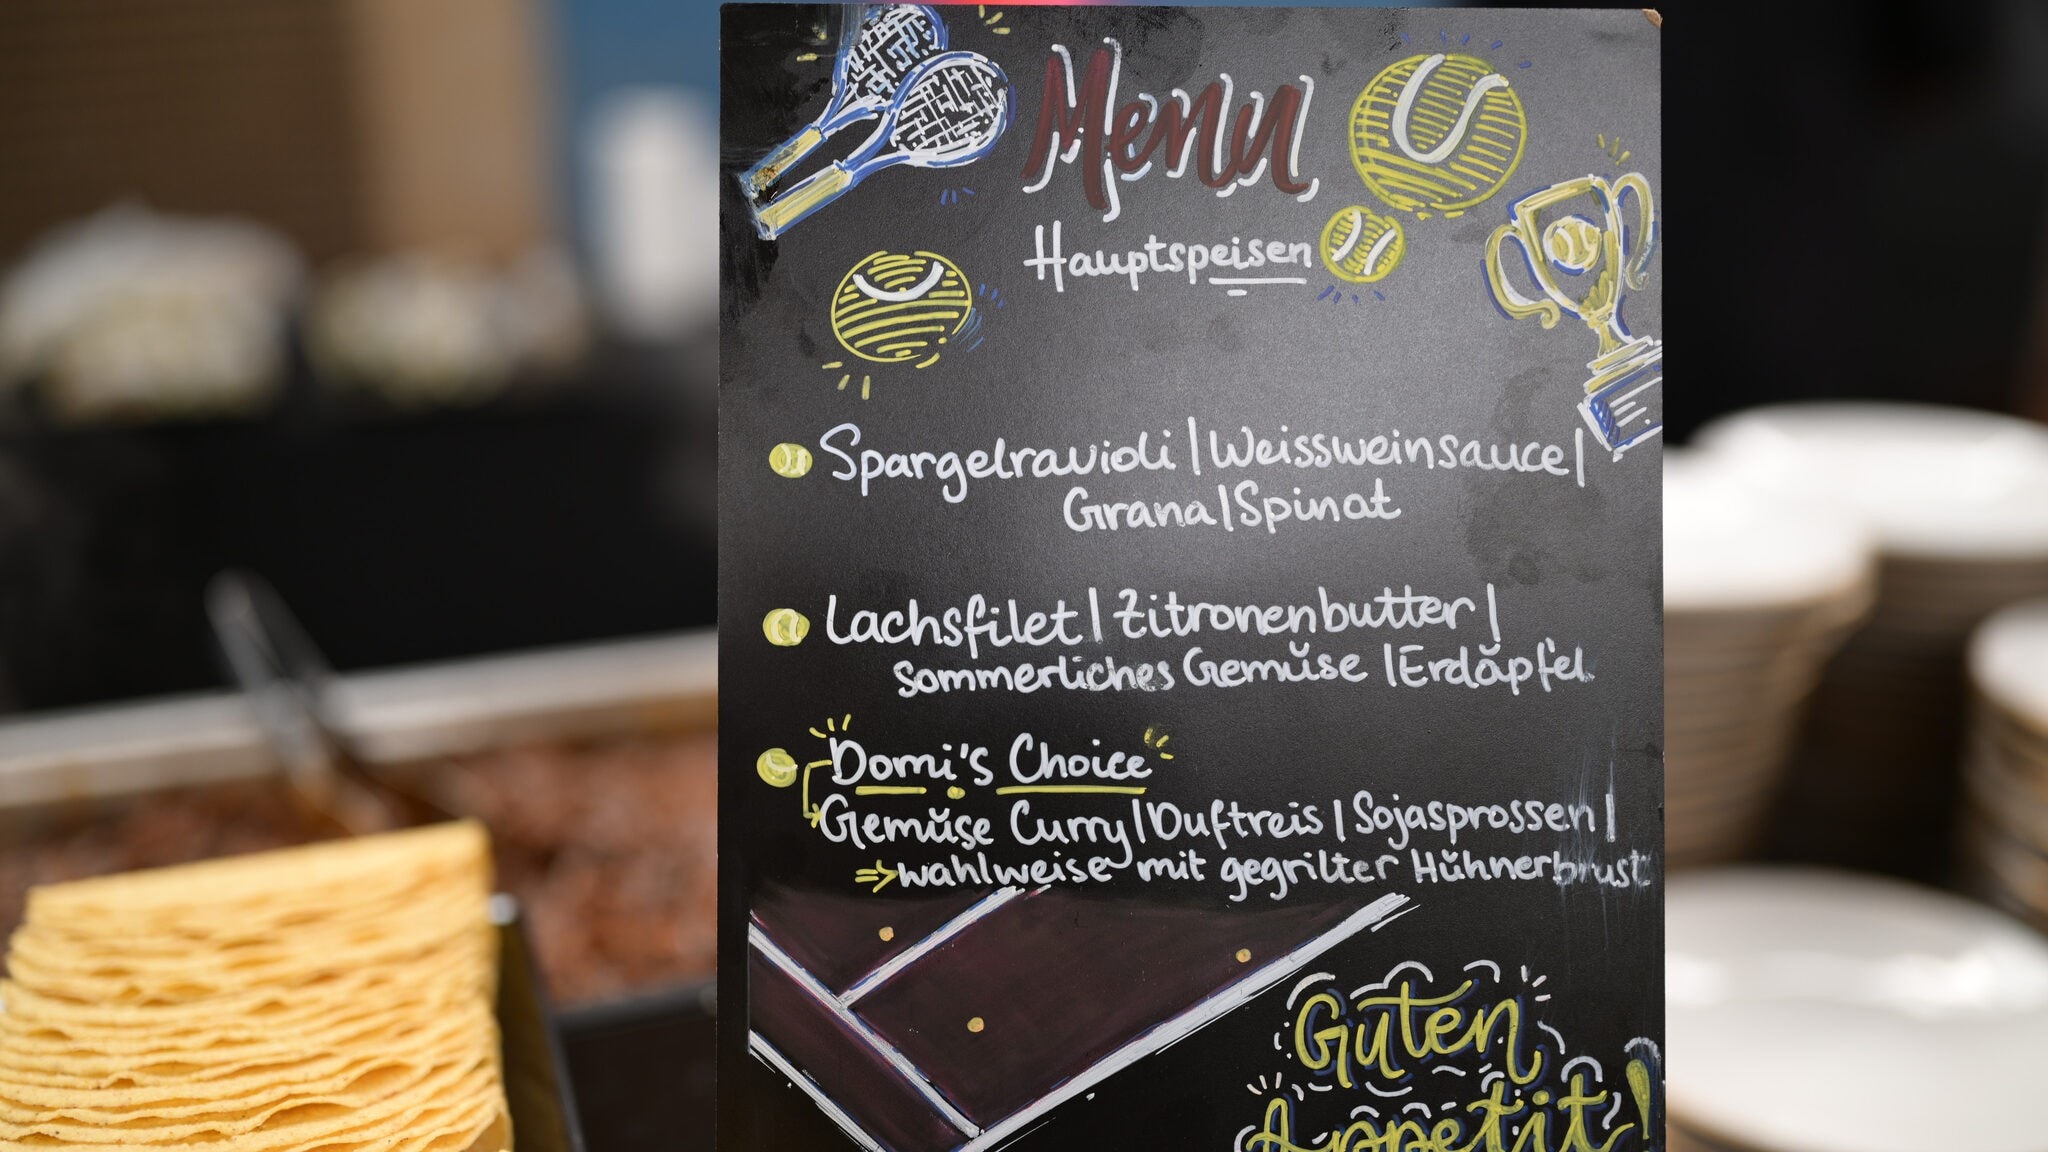 Menu
Hauptspeisen
Spargelravioli | Weissweinsauce |
Grana | Spinat
Lachsfilet | Zitronenbutter |
Sommerliches Gemüse | Erdäpfel
Domi's Choice
Gemüse Curry | Duftreis | Sojasprossen |
⇒ wahlweise mit gegrilter Hühnerbrust
Guten
Appetit!